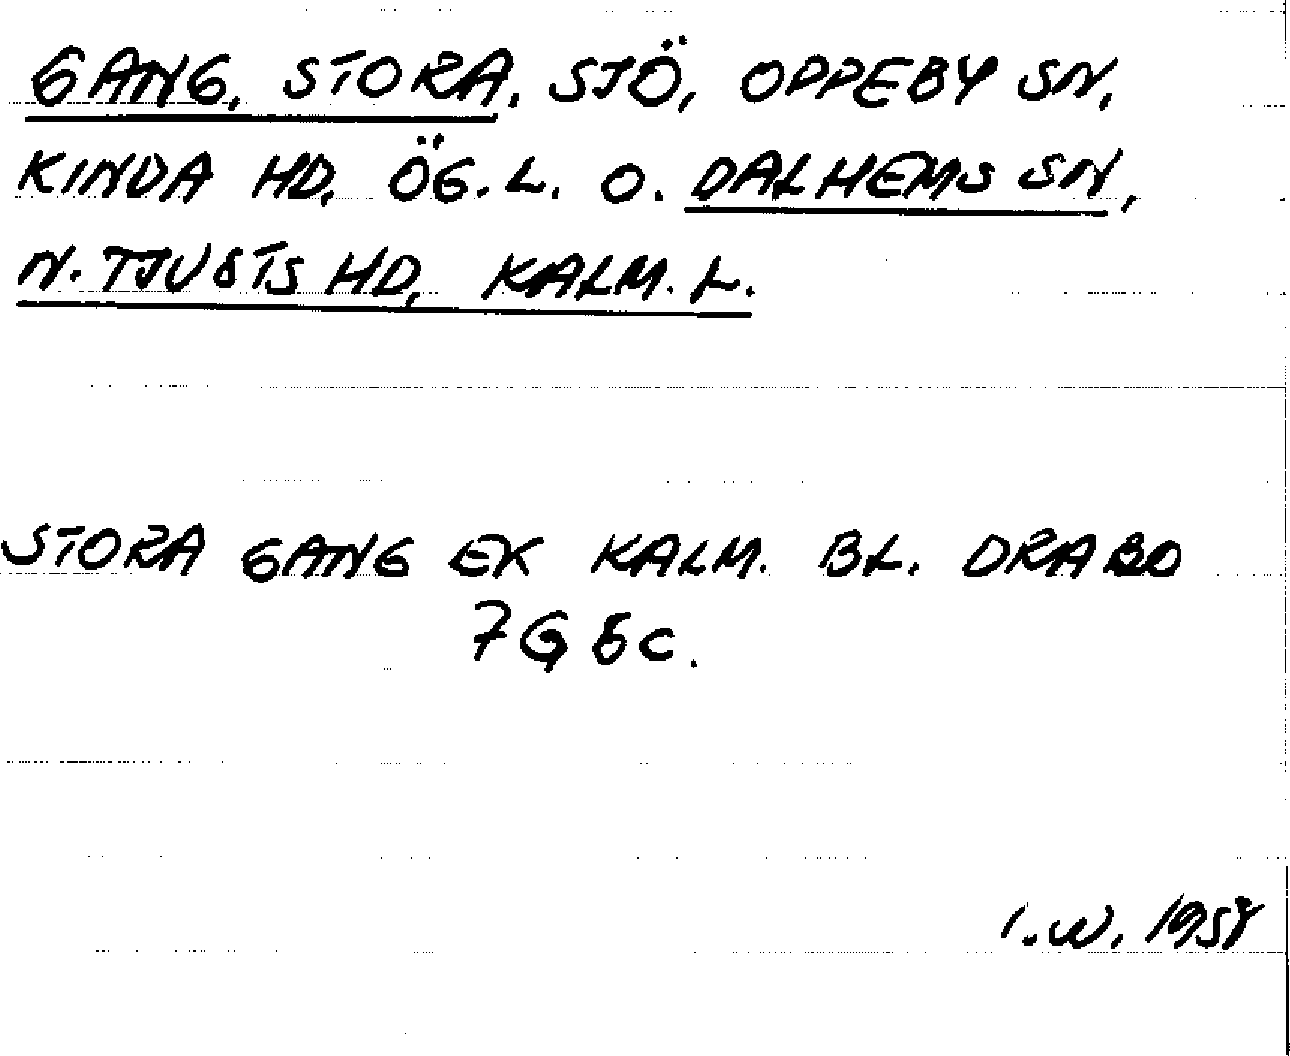 GANG, STORA, SJÖ, OPPEBY SN,
KINDA HD, ÖG. L. O. DALHEMS SN,
N. TJUSTS HD, KALM. L.
STORA GANG EK KALM. BL. DRABO
7G 5c.
I.W. 1958